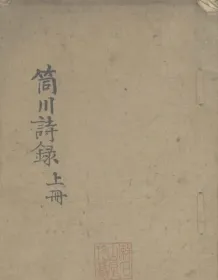 筒川詩錄 上冊